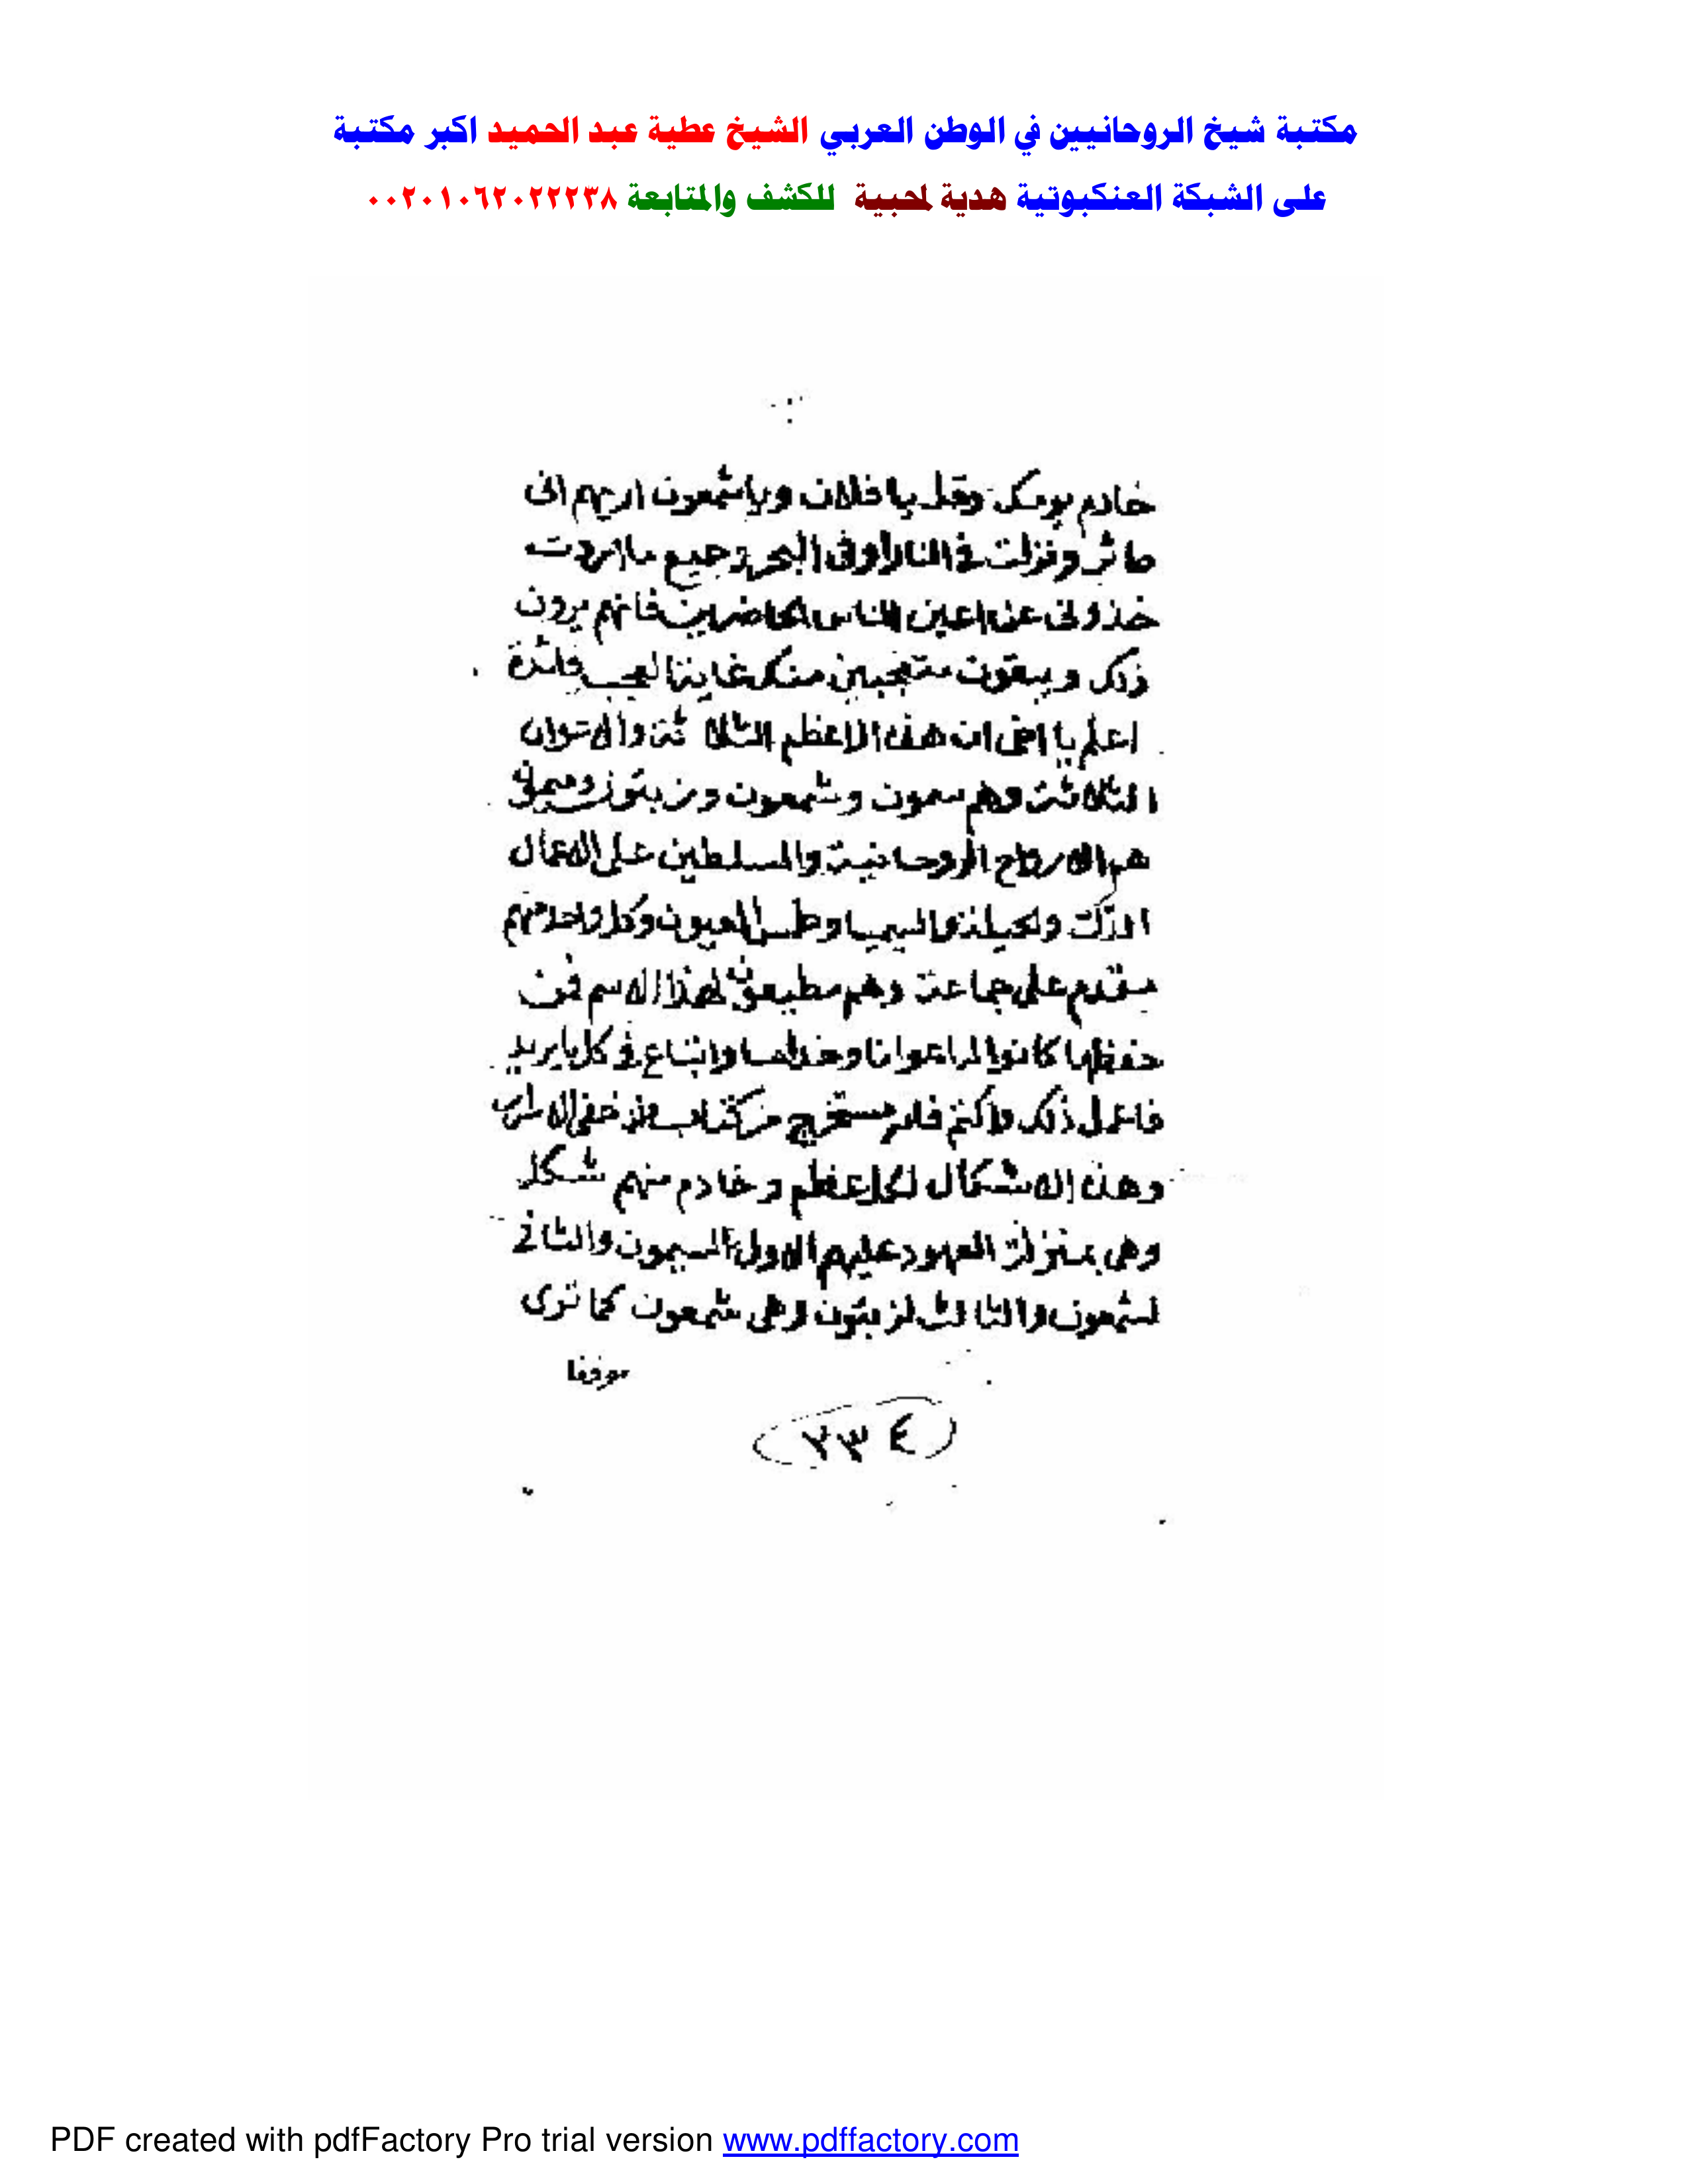 مكتبة شيخ الروحانيين في الوطن العربي الشيخ عطية عبد الحميد اكبر مكتبة
على الشبكة العنكبوتية هدية لمحبية للكشف والمتابعة ٠٠٢٠١٠٦٢٠٢٢٢٣٨
خادم يومك وقل يا فلان ويا شمعون اريهم انى
ونزلت فى النار او فى البحر وجميع ما اردت
خذونى عن اعين الناس الحاضرين فانهم يرون
ذلك ويبقون متعجبين منك غاية العجب فائدة
اعلم يا اخى ان هذه الاعظم الثلاثة والاعوان
الثلاثة وهم سمون وشمعون
هم الارواح الروحانية والمسلطين على الاعمال
السيميا وطمس العيون وكل واحد منهم
مقدم على جماعة وهم مطيعون لهذا الاسم فمن
حفظها كانوا له اعوانا واتباع فى كل ما يريد
فاعمل ذلك واكتم فانه مستخرج من كتاب
وهذه الاشكال لكل عظم وخادم منهم شكل
وهى بمنزلة العهود عليهم الاول لسمون والثانى
لشمعون والثالث لزيتون وهى شمعون كما ترى
موفقا
٢٣٤
PDF created with pdfFactory Pro trial version www.pdffactory.com